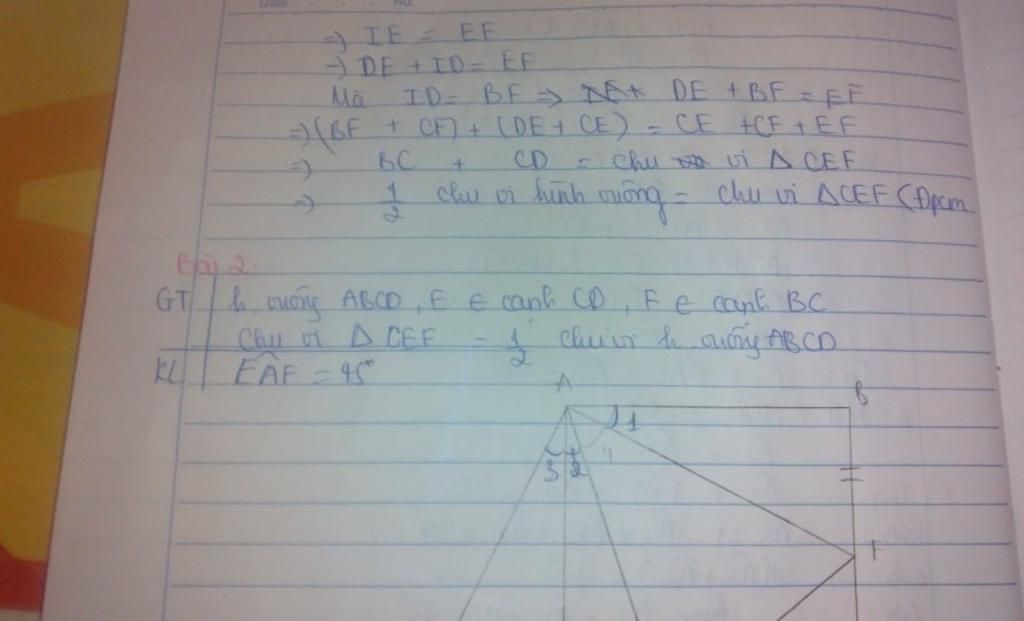 => IE = EF
=> DE + ID = EF
Mà ID = BF => DE + BF = EF
=> (BF + CF) + (DE + CE) = CE + CF + EF
=> BC + CD = chu vi Δ CEF
=> 1/2 chu vi hình vuông = chu vi ΔCEF (Đpcm
Bài 2:
GT h vuông ABCD, E ∈ cạnh CD, F ∈ cạnh BC
Chu vi Δ CEF = 1/2 chu vi h vuông ABCD
KL EAF = 45°
A B
1
3 2 4
F